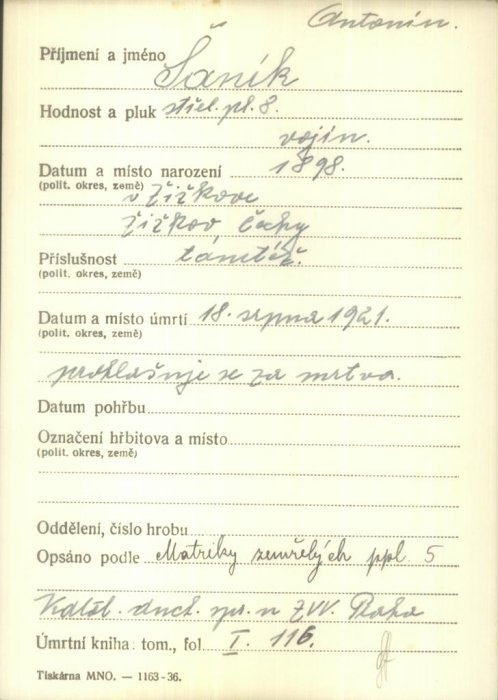 Antonín.
Příjmení a jméno Šaník
Hodnost a pluk střel. pl. 8.
vojín.
Datum a místo narození 1898.
(polit. okres, země) v Žižkově
Žižkov, Čechy
Příslušnost tamtéž.
(polit. okres, země)
Datum a místo úmrtí 18. srpna 1921.
(polit. okres, země)
prohlašuje se za mrtva.
Datum pohřbu
Označení hřbitova a místo
(polit. okres, země)
Oddělení, číslo hrobu
Opsáno podle Matriky zemřelých ppl. 5
Katol. duch. spr. u ZVV. Praha
Úmrtní kniha: tom., fol. I. 116.
Tiskárna MNO. — 1163-36.